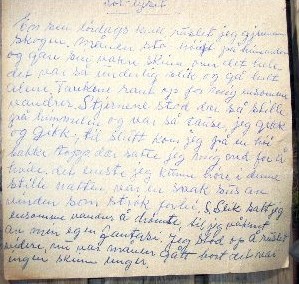 En sen lördags kväll ruslet jeg gjennom
skogen, månen sto høyt på himmelen
og gav sin vakre skinn over det hele
det var så underlig slik og gå helt
alene, tankene rann op for enslig ensomme
vandrer. Stjernene stod der så stille
på himmelen og var så tause, jeg gikk
og gikk, til slutt kom jeg på en høi
bakke topp der satte jeg meg ned for å
hvile, det eneste jeg kunne høre i denne
stille natten var en svak sus av
vinden som strøk forbi. Slik satt jeg
ensomme vandrer å drømte til jeg våknet
av min egen fantasi. Jeg stod op å ruslet
videre, nu var månen gått bort det var
ingen skinn lenger.